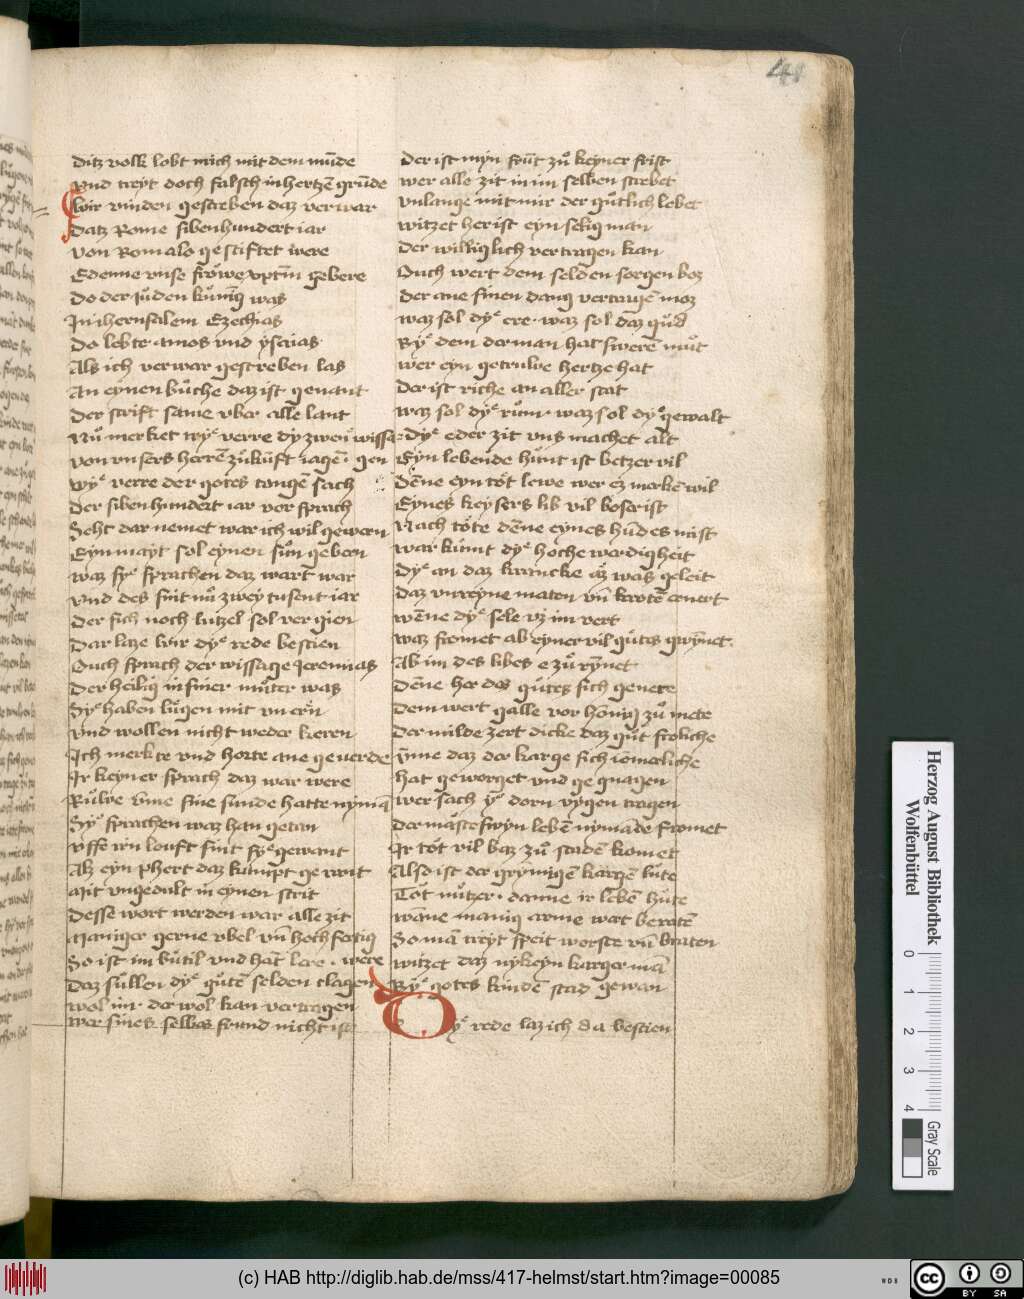 41
Ditz volk lobt mich mit dem mūde
vnd treyt doch falsch in hertzē grūde
wir vinden gescreben daz verwar
Datz Rome sibenhundert iar
von Romalo gestiftet were
E denne vnse frowe xptm gebere
Do der juden kunig was
In iherusalem Ezechias
Do lebte amos vnd ysaias
Als ich verwar gescreben las
An eynen buche daz ist genant
Der scrift same vber alle lant
Nu merket wye verre dy zwen wissa
von vnsers herrē zukunft iagen gen
wye verre der gotes tougē sach
Der siben hundert iar vor sprach
Seht dar nemet war ich wil gewern
Eyn mayt sol eynen sun gebern
waz sye sprachen daz wart war
vnd des sint nu zwey tusent iar
Der sich noch lutzel sol ver gien
Dar laze wir dye rede bestien
Ouch sprach der wissage Jeremias
Der heilig in siner muter was
Sye haben lugen mit in
vnd wollen nicht weder kieren
Ich merkte vnd horte ane geuerde
Ir keyner sprach daz war were
Ruwe vmme sine sunde hatte nymā
Sye sprachen waz han getan
vffe irn louft sint sye gewant
Als eyn phert daz kumpt ge rant
Mit vngedult in eynen strit
Desse wort werden war alle zit
Maniger gerne vbel vn̄ hoch fertig
So ist im butil vnd hat lere were
Daz sullen dye gutē selden clagen
wol im der wol kan vertragen
wer sines selbes frund nicht ist
Der ist myn frūt zu keyner frist
wer alle zit in im selben strebet
vnlange mit mir der gutlich lebet
witzet her ist eyn selig man
Der williglich vertragen kan
Ouch wert dem selden sorgen boz
Der ane sinen dang vertragē moz
waz sol dye ere waz sol daz gud
Bye dem der man hat swerē mut
wer eyn getruwe hertze hat
Der ist riche an aller stat
waz sol dye rum waz sol dye gewalt
Dye eder zit vns machet alt
Eyn lebende hunt ist betzer vil
Dēne eyn tot lewe wer ez merkē wil
Eynes keysers lib vil boser ist
Nach tote dēne eynes hūdes mist
war kumt dye hoche werdigheit
Dye an daz krancke az was geleit
Daz vnreyne maten vn̄ krotē
wēne dye sele vz im vert
waz fromet ab eyner vil gutes gwynnet
Ab im des libes e zu rynnet
Dēne her des gutes sich genete
Dem wert galle vor honig zu mete
Der milde zert dicke daz gut froliche
vmme daz der karge sich iemerliche
hat geworget vnd ge gnagen
wer sach ye dorn vygen tragen
Der maste swyn lebē nymāde fromet
Ir tot vil baz zu stadē komet
Also ist der grymigē kargē lute
Tot nutzer danne ir lebē hute
wāne manig arme wert beratē
So mā treyt speit worste vn̄ braten
witzet daz nykeyn karger mā
Bye gotes kindē stad gewan
Dye rede laz ich da bestien
Herzog August Bibliothek
Wolfenbüttel
0
1
2
3
4
Gray Scale
(c) HAB http://diglib.hab.de/mss/417-helmst/start.htm?image=00085
WDB
cc
BY
SA